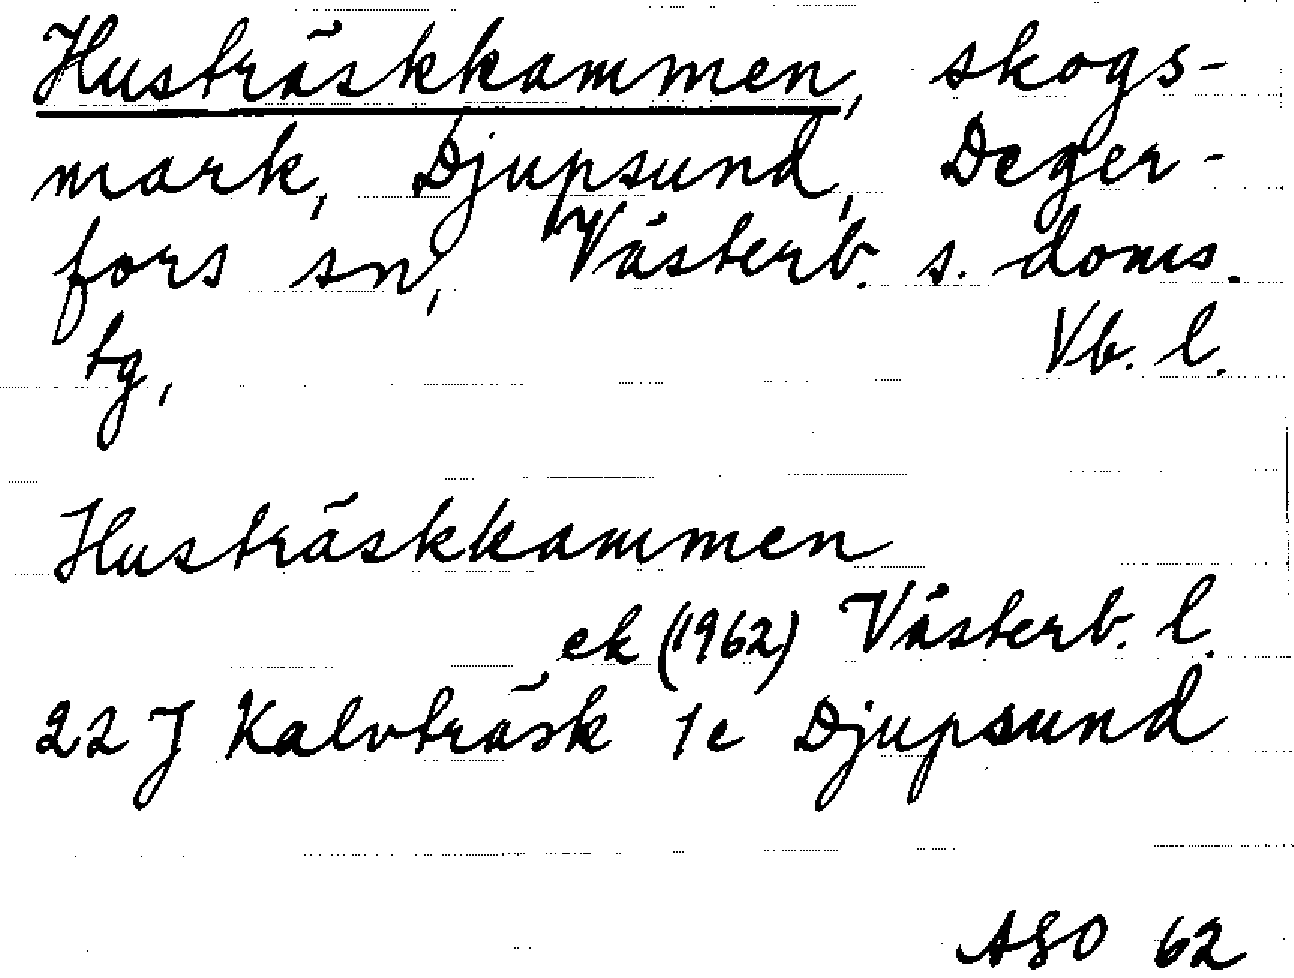 Husträskkammen, skogs-
mark, Djupsund, Deger-
fors sn, Västerb. s. doms.
tg, Vb. l.
Husträskkammen
ek (1962) Västerb. l.
22 J Kalvträsk 1c Djupsund
ASO 62